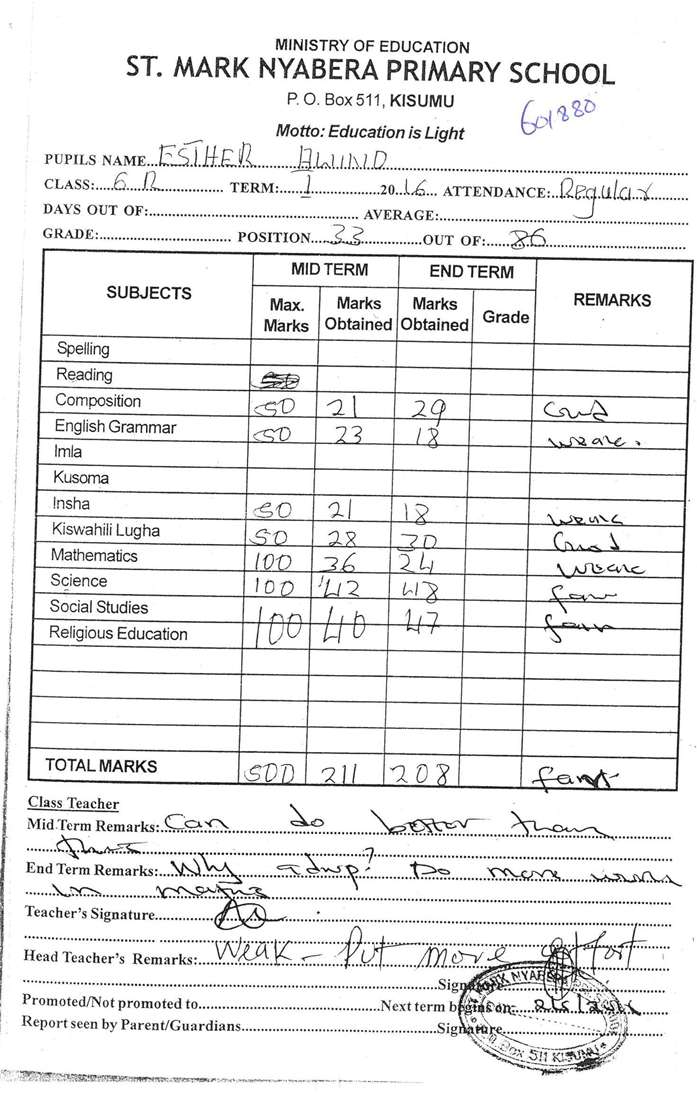 MINISTRY OF EDUCATION
ST. MARK NYABERA PRIMARY SCHOOL
P. O. Box 511, KISUMU
601880
Motto: Education is Light
PUPILS NAME...ESTHER AWINO
CLASS:...6 R... TERM:...1...2016 ATTENDANCE:..Regular
DAYS OUT OF:... AVERAGE:...
GRADE:... POSITION...33...OUT OF:...86
SUBJECTS MID TERM END TERM REMARKS
Max. Marks Marks Obtained Marks Obtained Grade
Spelling
Reading
Composition 50 21 29 Good
English Grammar 50 23 18 weak.
Imla
Kusoma
Insha 50 21 18 weak
Kiswahili Lugha 50 28 30 Good
Mathematics 100 36 24 weak
Science 100 42 48 fair
Social Studies
Religious Education 100 40 47 fair
TOTAL MARKS 500 211 208 fair
Class Teacher
Mid Term Remarks: Can do better than
this
End Term Remarks: Why a drop? Do more work
in maths
Teacher's Signature...
Head Teacher's Remarks:..Weak - Put more effort
Signature
Promoted/Not promoted to...Next term begins on:
Report seen by Parent/Guardians...Signature...
MARK NYABERA
P.O. Box 511 KISUMU